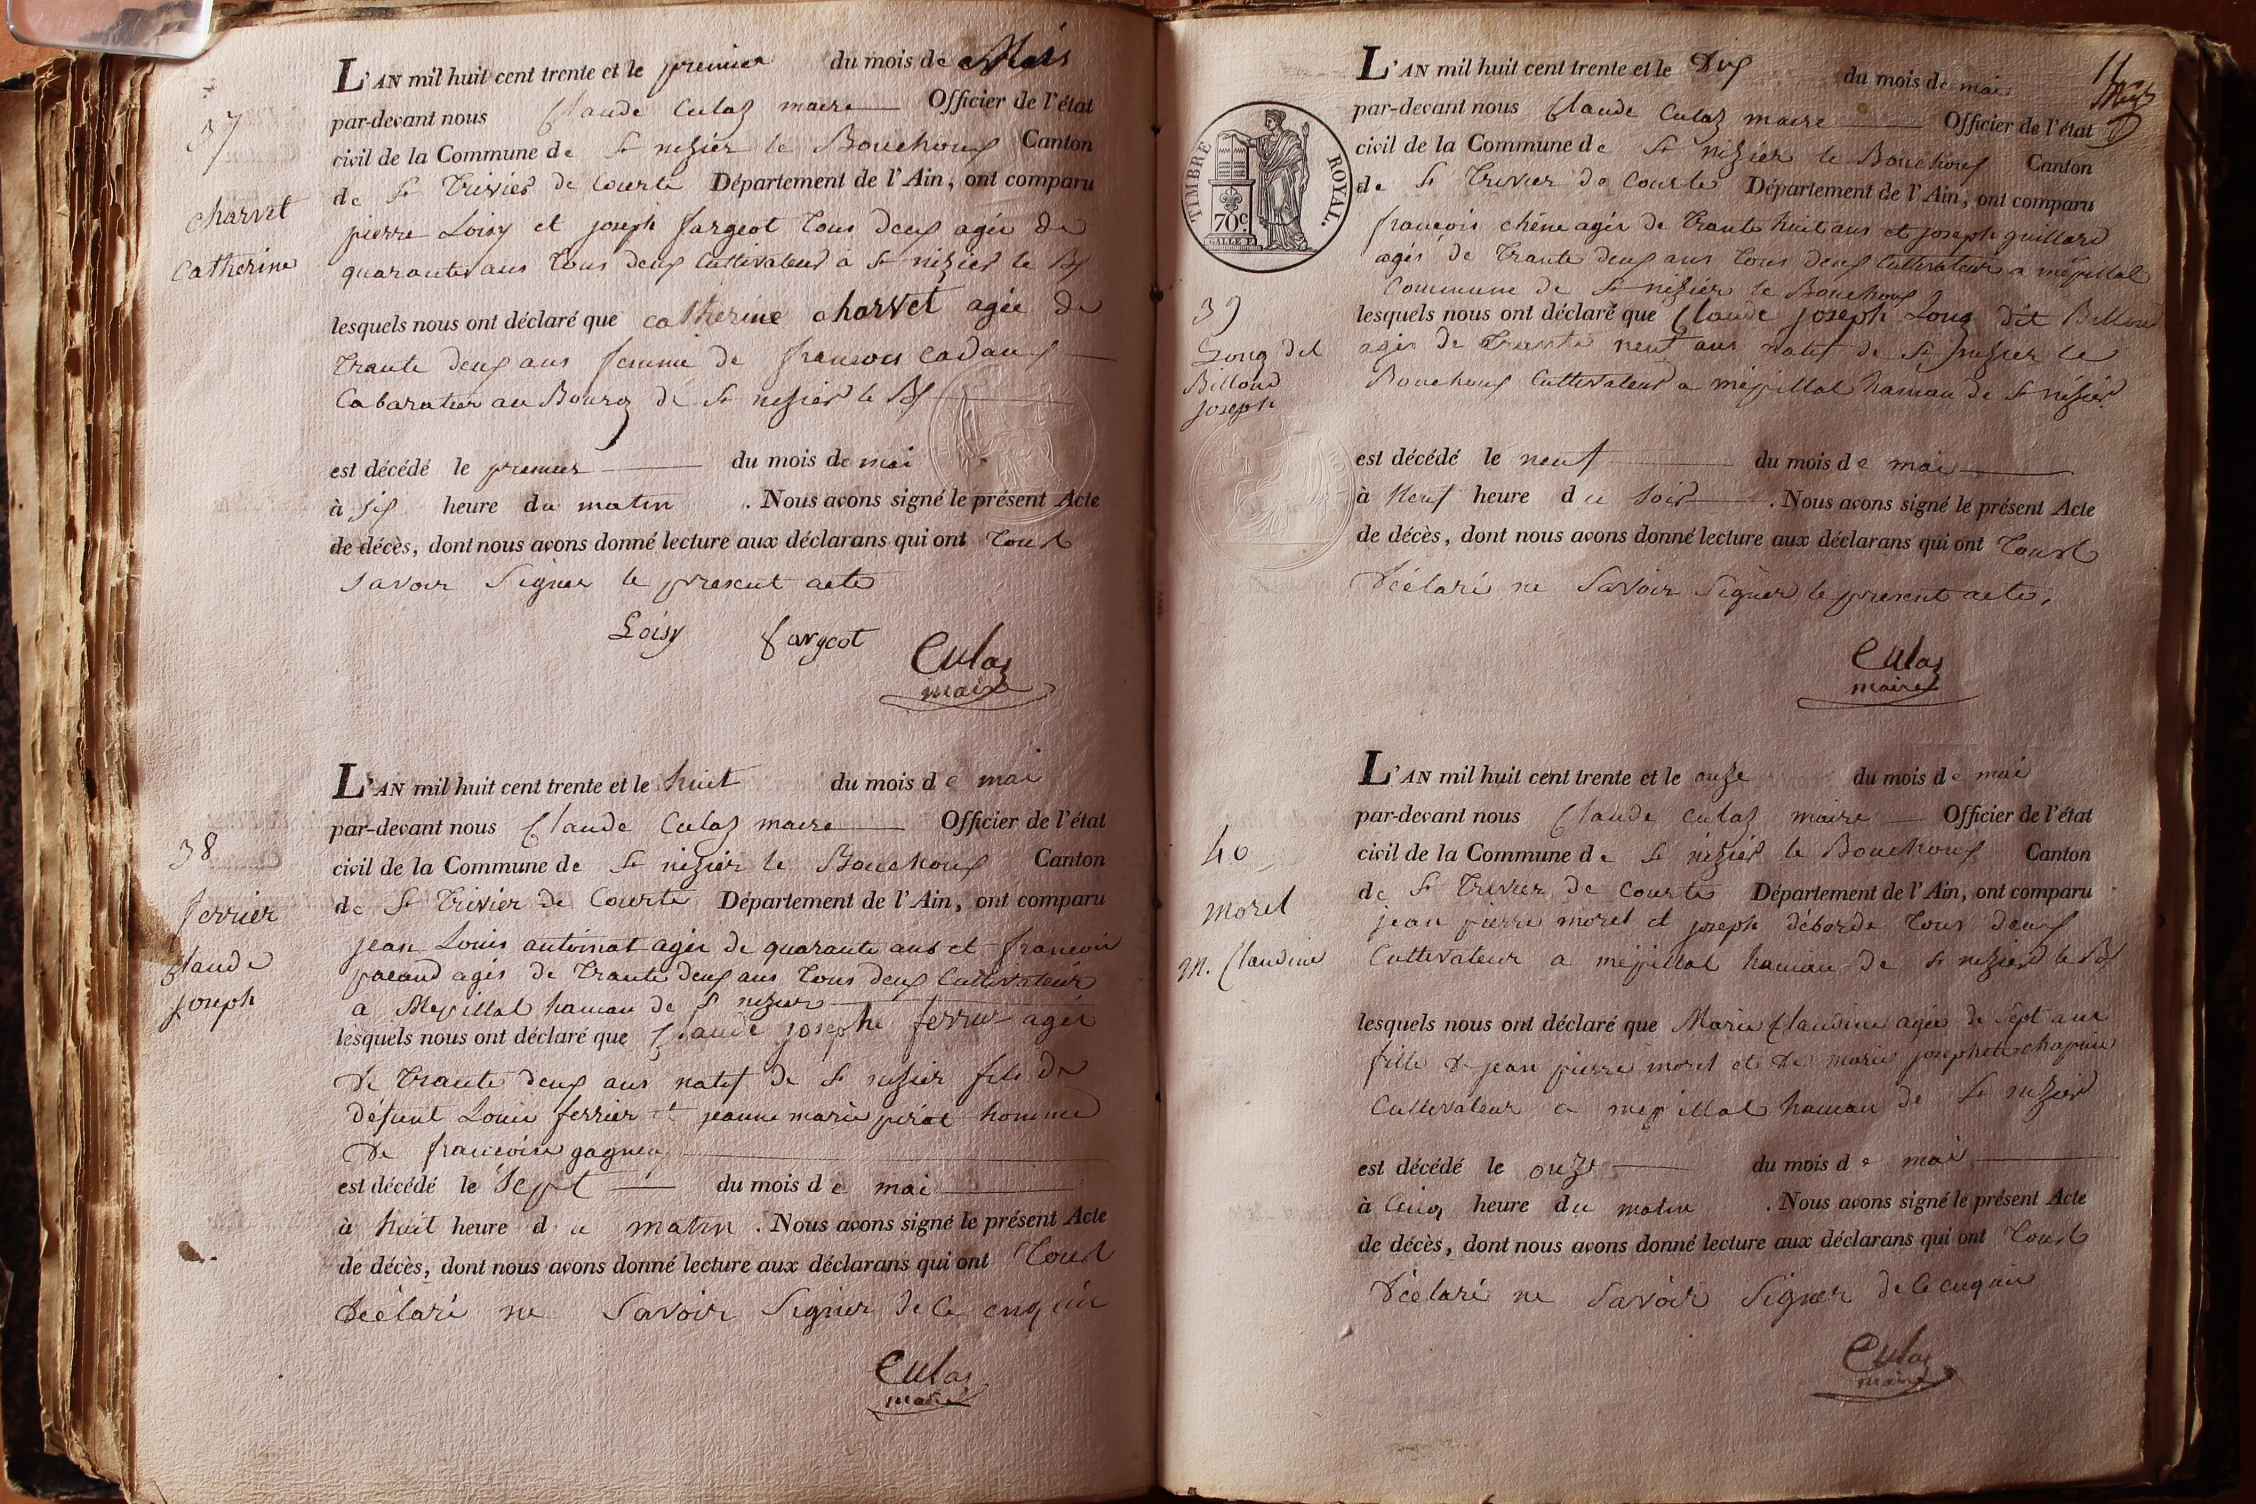 37
charvet
catherine
L'AN mil huit cent trente et le premier du mois de Mais
par-devant nous Claude Culaz maire Officier de l'état
civil de la Commune de St nizier le Bouchoux Canton
de St Trivier de Courte Département de l'Ain, ont comparu
pierre Loisy et joseph fargeot tous deux agés de
quarante ans tous deux Cultivateur a St nizier le Bx
lesquels nous ont déclaré que catherine charvet agée de
trante deux ans femme de francois cadaux
Cabaratier au Bourg de St nizier le Bx
est décédé le premier du mois de mai
à six heure du matin . Nous avons signé le présent Acte
de décès, dont nous avons donné lecture aux déclarans qui ont tous
savoir Signer le present acte
Loisy fargeot Culaz
maire
38
ferrier
Claude
joseph
L'AN mil huit cent trente et le huit du mois de mai
par-devant nous Claude Culaz maire Officier de l'état
civil de la Commune de St nizier le Bouchoux Canton
de St Trivier de Courte Département de l'Ain, ont comparu
jean Louis agés de quarante ans et francois
agés de trante deux ans tous deux Cultivateur
a Mepillat hamau de St nizier
lesquels nous ont déclaré que Claude josephe ferrier agés
de trante deux ans natif de St nizier fils de
défunt Louis ferrier et jeanne marie homme
de francoise
est décédé le Sept du mois de mai
à huit heure du matin . Nous avons signé le présent Acte
de décès, dont nous avons donné lecture aux déclarans qui ont tous
déclaré ne Savoir Signer de ce enquis
Culaz
maire
TIMBRE ROYAL.
70c.
39
Long dit
Billoud
joseph
L'AN mil huit cent trente et le Dix du mois de mai
par-devant nous Claude Culaz maire Officier de l'état
civil de la Commune de St nizier le Bouchoux Canton
de St Trivier de Courte Département de l'Ain, ont comparu
francois chêne agés de trante huit ans et joseph guillard
agés de trante deux ans tous deux Cultivateur a mépillat
Commune de St nizier le Bouchoux
lesquels nous ont déclaré que Claude joseph Long dit Billoud
agés de trante neuf ans natif de St nizier le
Bouchoux Cultivateur a mépillat hamau de St nizier
est décédé le neuf du mois de mai
à Neuf heure du Soir . Nous avons signé le présent Acte
de décès, dont nous avons donné lecture aux déclarans qui ont tous
déclaré ne Savoir Signer le present acte,
Culaz
maire
40
morel
M. Claudine
L'AN mil huit cent trente et le onze du mois de mai
par-devant nous Claude Culaz maire Officier de l'état
civil de la Commune de St nizier le Bouchoux Canton
de St Trivier de Courte Département de l'Ain, ont comparu
jean pierre morel et joseph déborde tous deux
Cultivateur a mépillat hamau de St nizier le Bx
lesquels nous ont déclaré que Marie Claudine agée de sept ans
fille de jean pierre morel et de marie josephete
Cultivateur a mepillat hamau de St nizier
est décédé le onze du mois de mai
à Cinq heure du matin . Nous avons signé le présent Acte
de décès, dont nous avons donné lecture aux déclarans qui ont tous
déclaré ne Savoir Signer de ce enquis
Culaz
maire